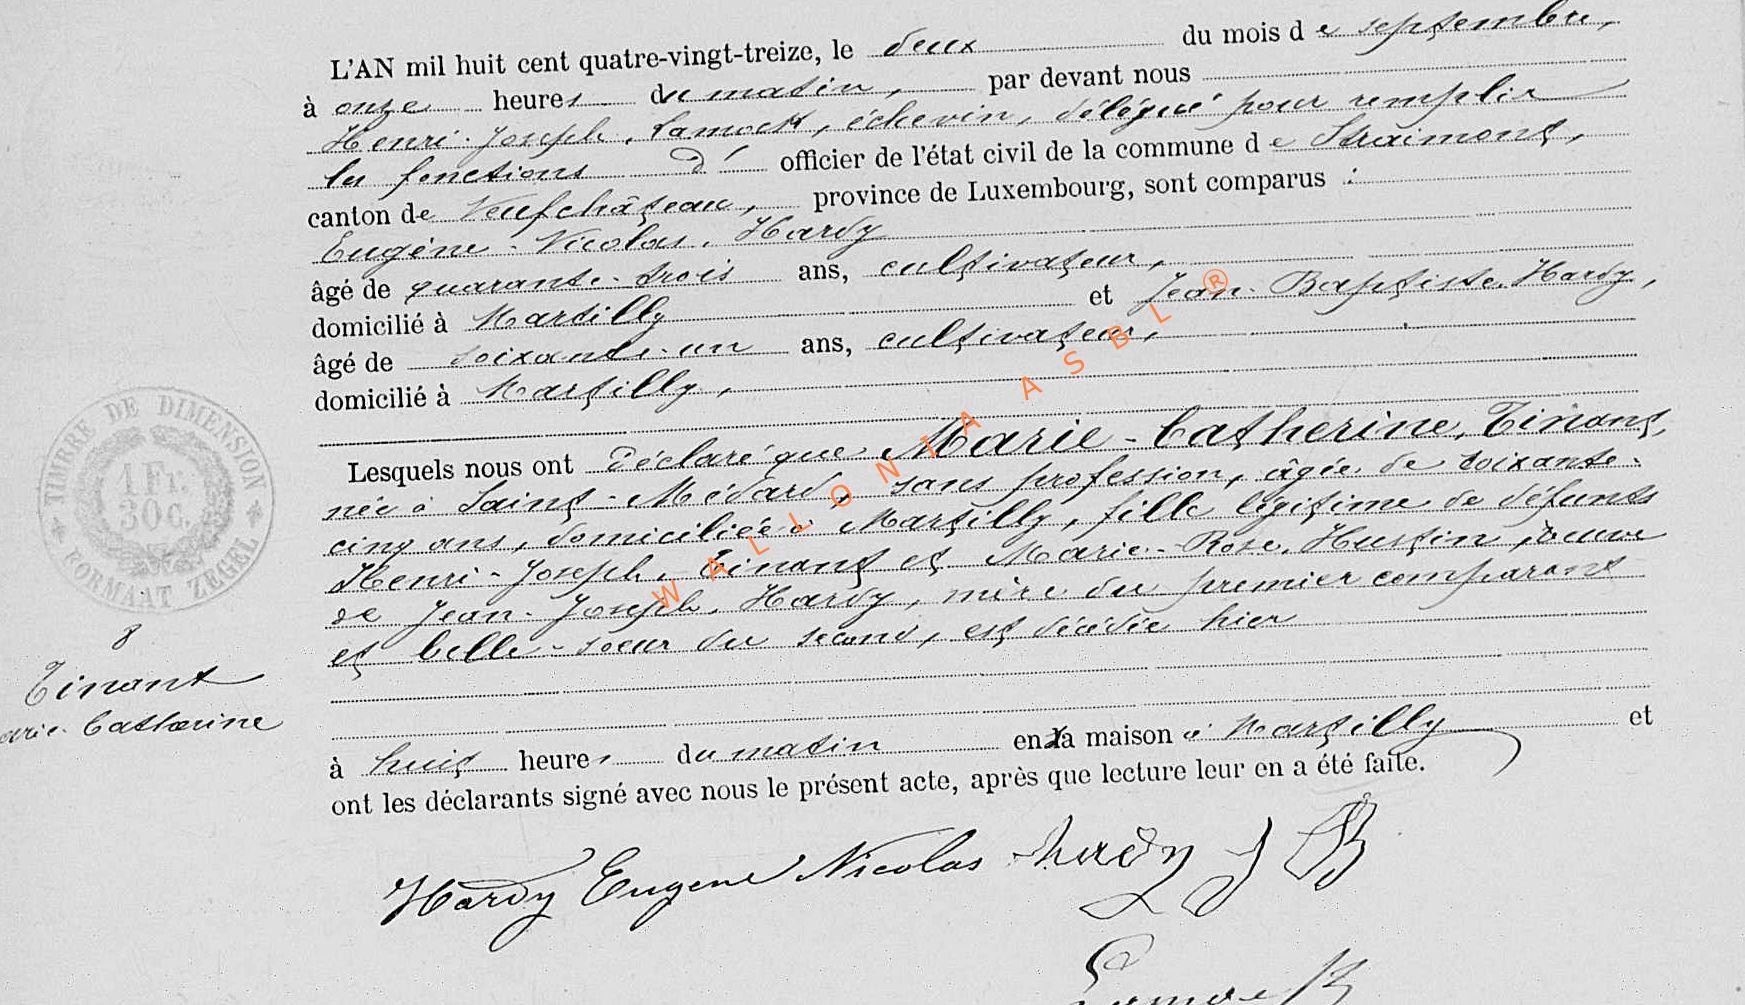 L'AN mil huit cent quatre-vingt-treize, le deux du mois de septembre,
à onze heures du matin, par devant nous
Henri-Joseph, Lamock, échevin, délégué pour remplir
les fonctions d' officier de l'état civil de la commune de Straimont,
canton de Neufchâteau, province de Luxembourg, sont comparus :
Eugène-Nicolas, Hardy
âgé de quarante-trois ans, cultivateur,
domicilié à Martilly et Jean-Baptiste, Hardy,
âgé de soixante-un ans, cultivateur,
domicilié à Martilly,
Lesquels nous ont déclaré que Marie-Catherine, Tinant,
née à Saint-Médard, sans profession, âgée de soixante-
cinq ans, domiciliée à Martilly, fille légitime de défunts
Henri-Joseph, Tinant et Marie-Rose, Hustin, veuve
de Jean-Joseph, Hardy, mère du premier comparant
et belle-soeur du second, est décédée hier
à huit heures du matin en sa maison à Martilly et
ont les déclarants signé avec nous le présent acte, après que lecture leur en a été faite.
Hardy Eugene Nicolas hardy J B
TIMBRE DE DIMENSION
1 Fr.
30 c.
FORMAAT ZEGEL
8
Tinant
arie-Catherine
WALLONIA ASBL ®